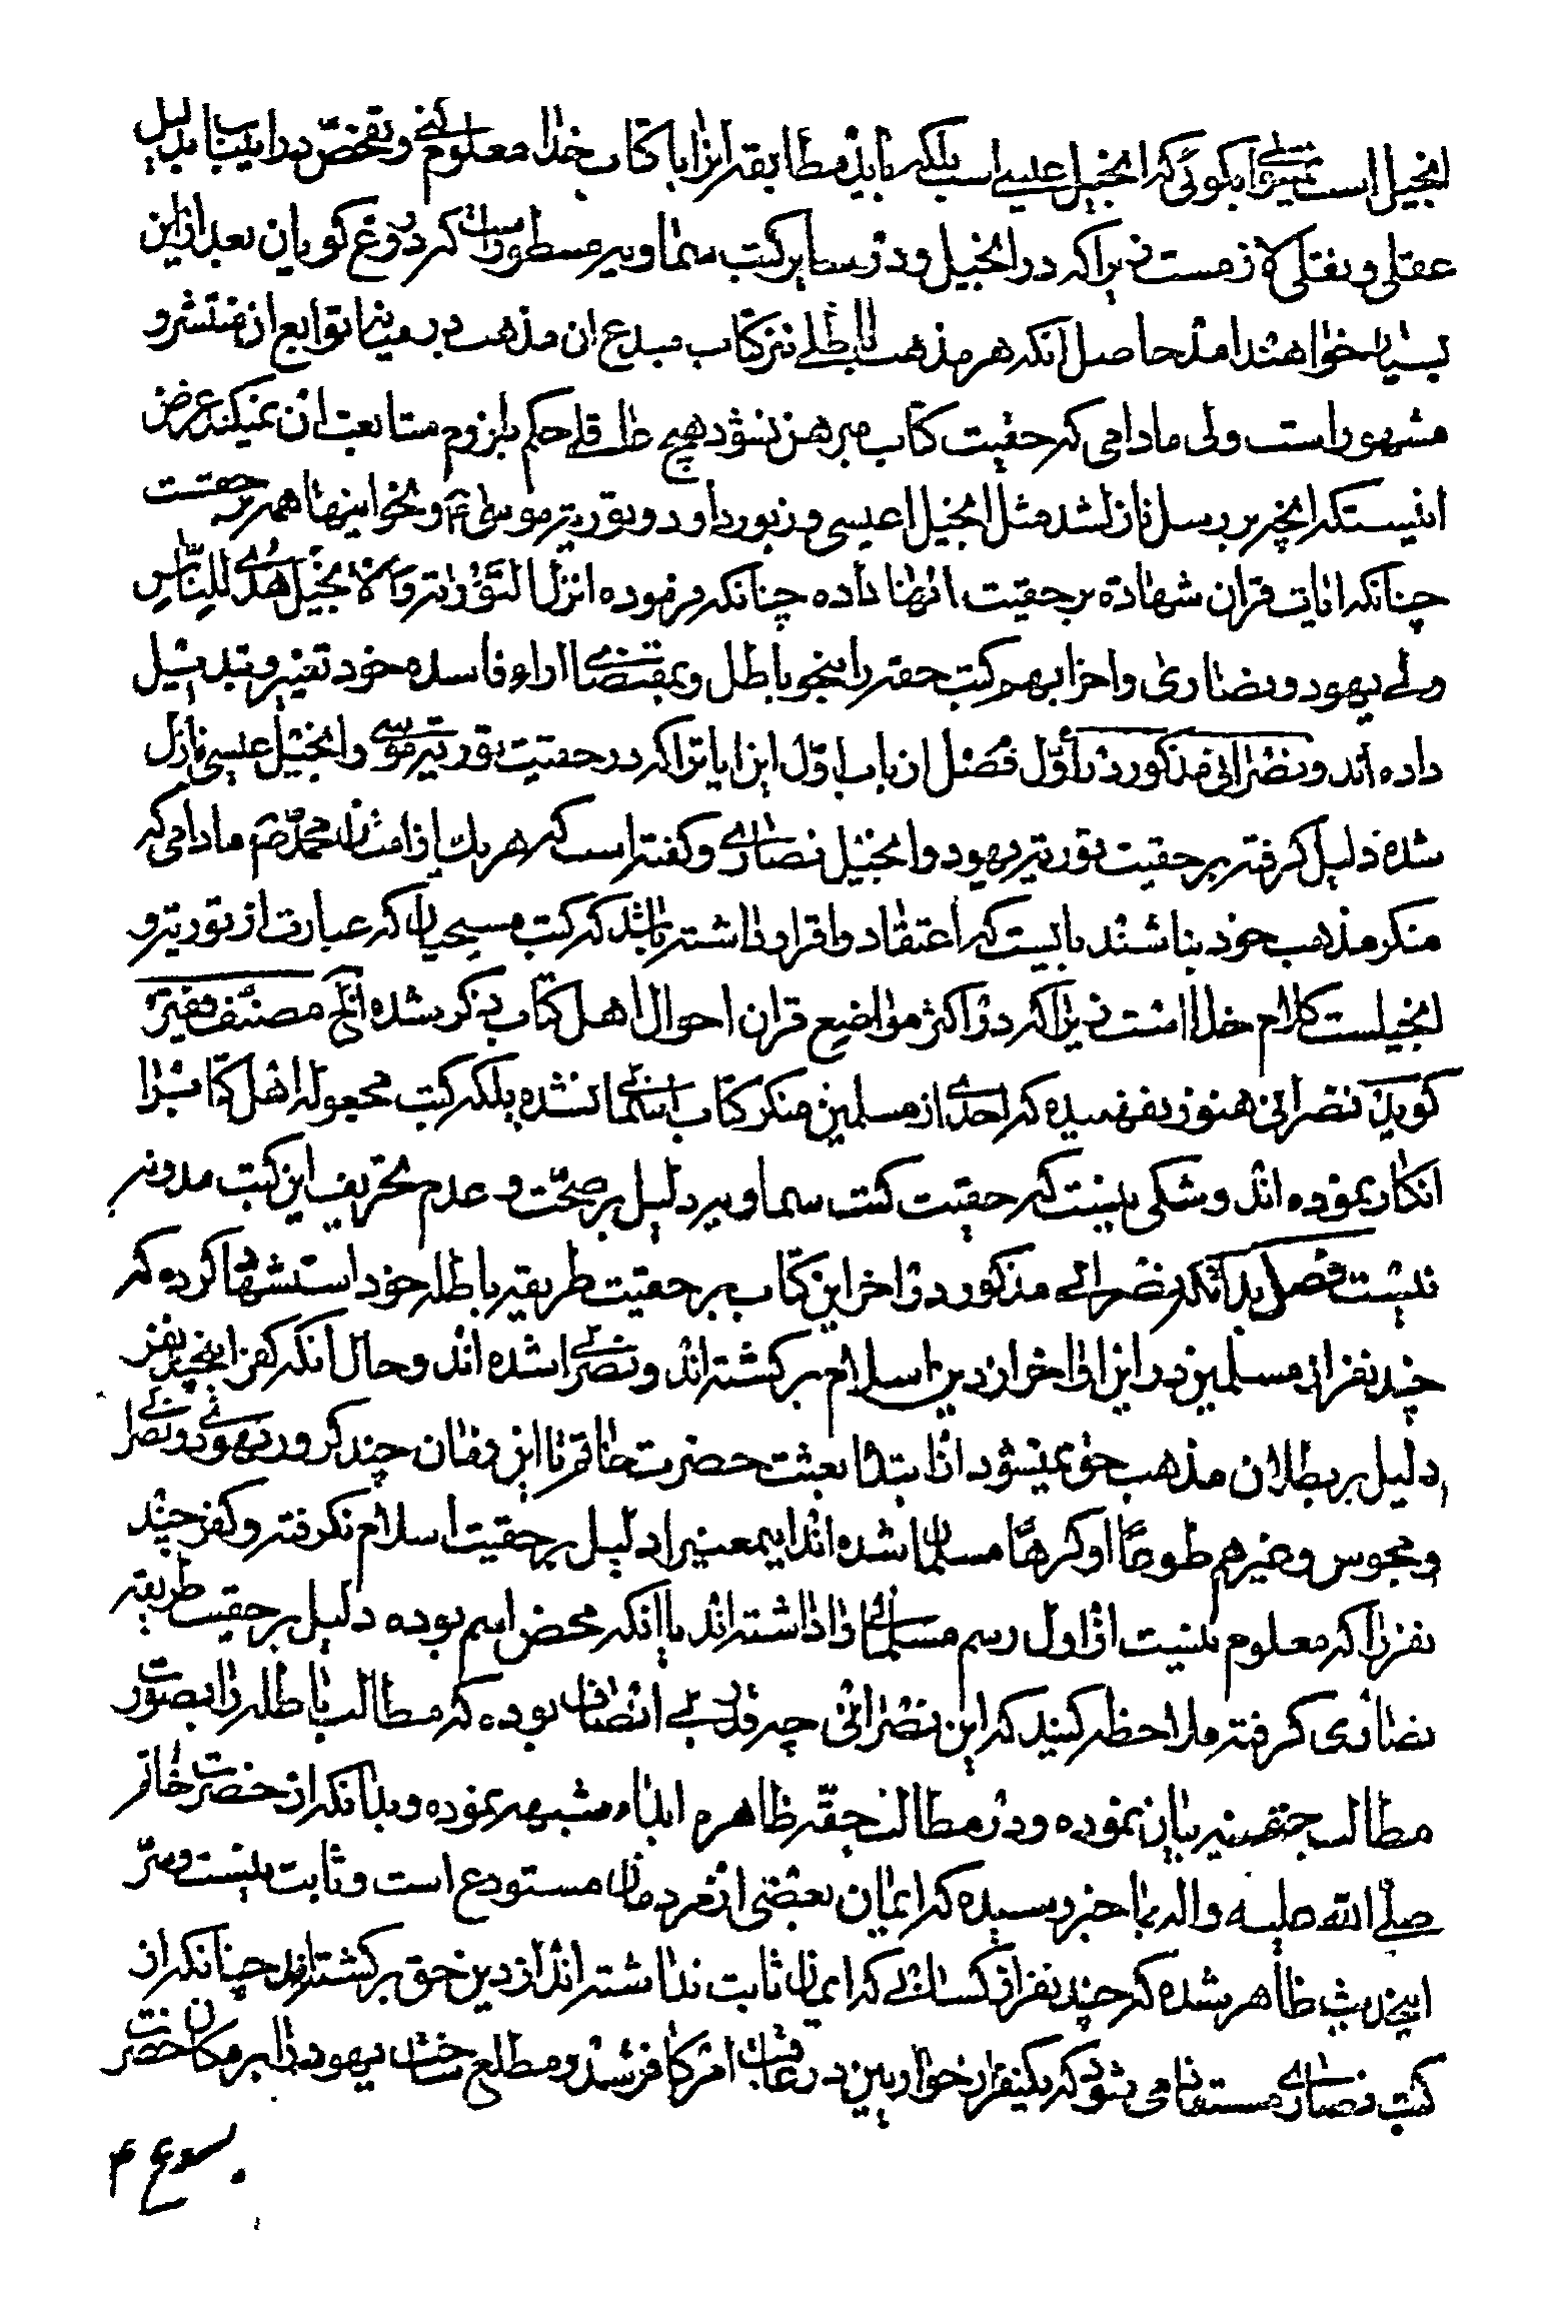 انجیل است نمیتوان بگوئی که انجیل عیسی است بلکه باید مطابقه انرا با کتاب خدا معلوم کنی و تفحص در اینباب بدلیل
عقلی و نقلی لازمست زیرا که در انجیل و در سایر کتب سماویه مسطور است که دروغ کویان بعد از این
بسیار خواهند امد حاصل آنکه هر مذهب باطلی نیز کتاب مبدع ان مذهب در میان توابع ان منتشر و
مشهور است ولی مادامی که حقیت کتاب مبرهن نشود هیچ عاقلی حکم بلزوم متابعت ان نمیکند غرض
اینستکه انچه بر رسل نازلشده مثل انجیل عیسی و زبور داود و توریة موسی ؑ و نحو اینها همه بر حقست
چنانکه ایات قران شهادة بر حقیت انها داده چنانکه فرموده انزل التَّوْرٰیة وَالْاِنْجٖیلَ هُدًی لِلنّٰاسِ
ولی یهود و نصاری و احزابهم کتب حقه را بنحو باطل و بمقتضای اراء فاسده خود تغییر و تبدیل
داده اند و نصرانی مذکور در اوّل فصل از باب اوّل این ایات را که در حقیت توریة موسی و انجیل عیسی نازل
شده دلیل کرفته بر حقیت توریة یهود و انجیل نصاری و کفته است که هر یک از امتان محمد ص مادامی که
منکر مذهب خود نباشند بایست که اعتقاد و اقرار داشته باشد که کتب مسیحیان که عبارت از توریة و
انجیلست کلام خدا است زیرا که در اکثر مواضع قران احوال اهل کتاب ذکر شده الخ مصنّف فقیر
کوید نصرانی هنوز نفهمیده که احدی از مسلمین منکر کتاب اسمانی نشده بلکه کتب مجعوله اهل کتاب را
انکار نموده اند و شکی نیست که حقیت کتب سماویه دلیل بر صحّت و عدم تحریف این کتب مدونه
نیست فصل بدانکه نصرانی مذکور در اخر این کتاب بر حقیت طریقه باطله خود استشهاد کرده که
چند نفر از مسلمین در این اواخر از دین اسلام برکشته اند و نصرانی شده اند و حال انکه کفر این چند نفر
دلیل بر بطلان مذهب حق نمیشود از ابتدا بعثت حضرت خاتم تا این زمان چند کرور یهودی و نصرانی
و مجوس و غیرهم طوعًا او کرهًا مسلمان شده اند اینمعنی را دلیل بر حقیت اسلام نکرفته و کفر چند
نفر را که معلوم نیست از اول رسم مسلمانی را داشته اند یا انکه محض اسم بوده دلیل بر حقیت طریقه
نصاری کرفته ملاحظه کنید که این نصرانی چه قدر بی انصاف بوده که مطالب باطله را بصورت
مطالب حقه بیان نموده و در مطالب حقّه ظاهره القاء شبهه نموده و بدانکه از حضرت خاتم
صلی الله علیه و اله بما خبر رسیده که ایمان بعضی از مردمان مستودع است و ثابت نیست و سرّ
اینحدیث ظاهر شده که چند نفر از کسانی که ایمان ثابت نداشته اند از دین حق برکشته اند چنانکه از
کتب نصاری مستفاد می شود که یکنفر از حواریین در عاقبت امر کافر شد و مطلع ساخت یهود را بر مکان حضرت
یسوع ۴